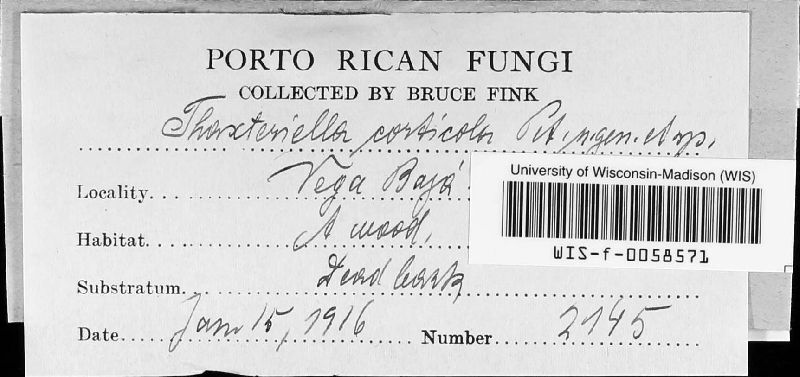 PORTO RICAN FUNGI
COLLECTED BY BRUCE FINK
Thaxteriella corticola Pet. n. gen. et sp.
Locality Vega Baja
Habitat A wood,
Substratum Dead bark
Date Jan 15, 1916 Number 2145
University of Wisconsin-Madison (WIS)
WIS-f-0058571